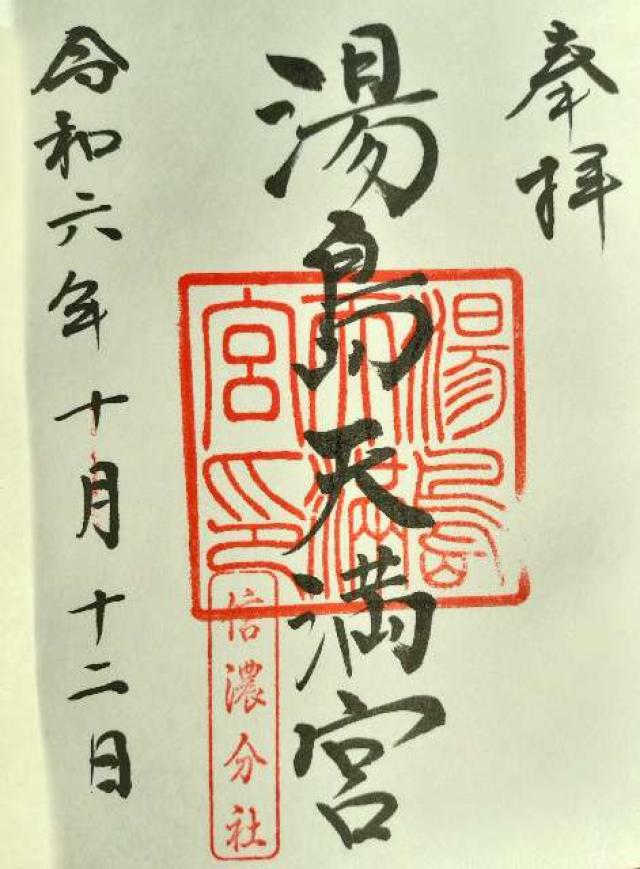 奉拝
湯島天満宮
湯島天満宮印
信濃分社
令和六年十月十二日